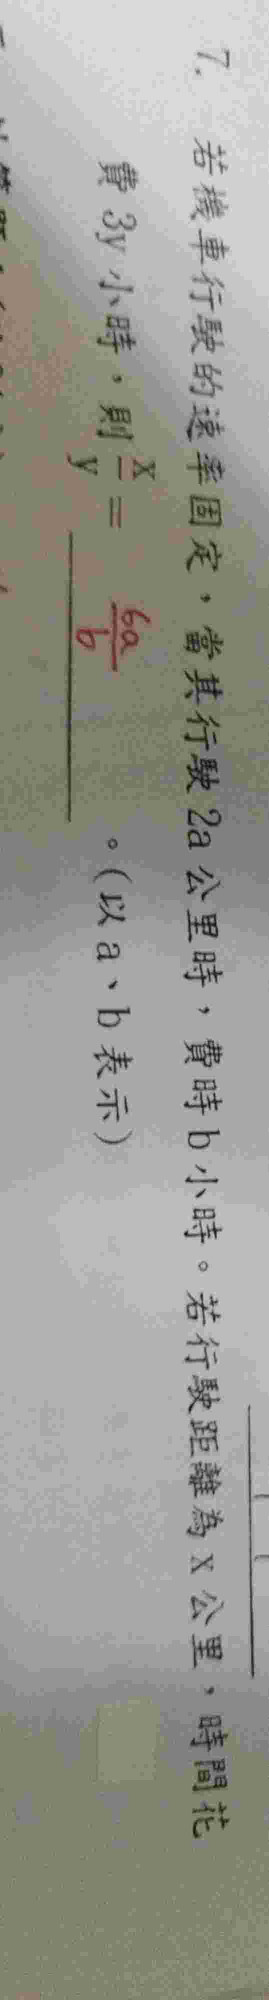 7. 若機車行駛的速率固定，當其行駛 2a 公里時，費時 b 小時。若行駛距離為 x 公里，時間花
費 3y 小時，則 x/y = 6a/b 。（以 a、b 表示）